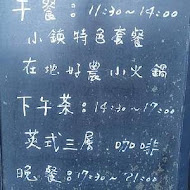 午餐：11:30~14:00
小鎮特色套餐
在地好農小火鍋
下午茶：14:30~17:00
英式三層 咖啡
晚餐：17:30~21:00